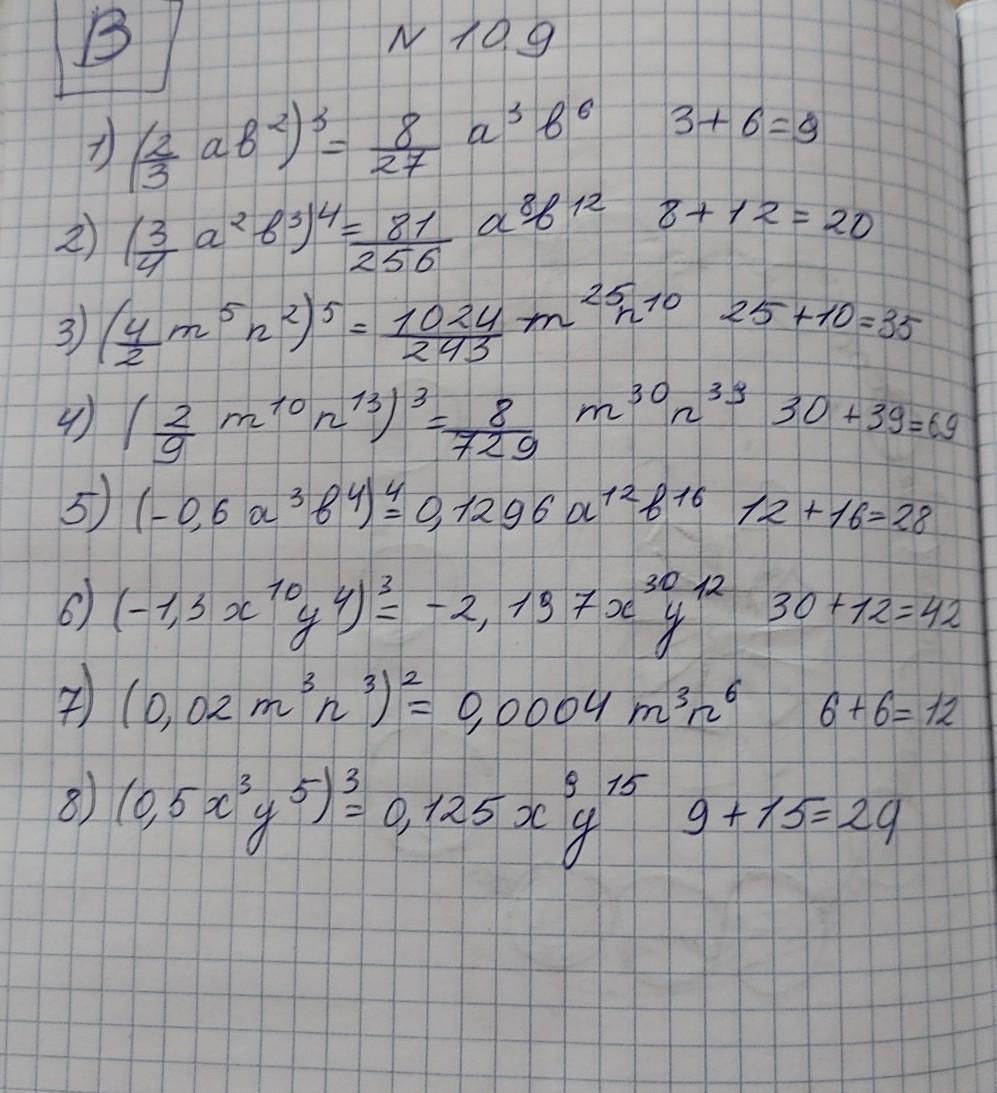 В N 109
1) (2/3 ab²)³ = 8/27 a³b⁶ 3+6=9
2) (3/4 a²b³)⁴ = 81/256 a⁸b¹² 8+12=20
3) (4/2 m⁵n²)⁵ = 1024/243 m²⁵n¹⁰ 25+10=35
4) (2/9 m¹⁰n¹³)³ = 8/729 m³⁰n³⁹ 30+39=69
5) (-0,6 a³b⁴)⁴ = 0,1296 a¹²b¹⁶ 12+16=28
6) (-1,3 x¹⁰y⁴)³ = -2,197 x³⁰y¹² 30+12=42
7) (0,02 m³n³)² = 0,0004 m³n⁶ 6+6=12
8) (0,5 x³y⁵)³ = 0,125 x⁹y¹⁵ 9+15=29